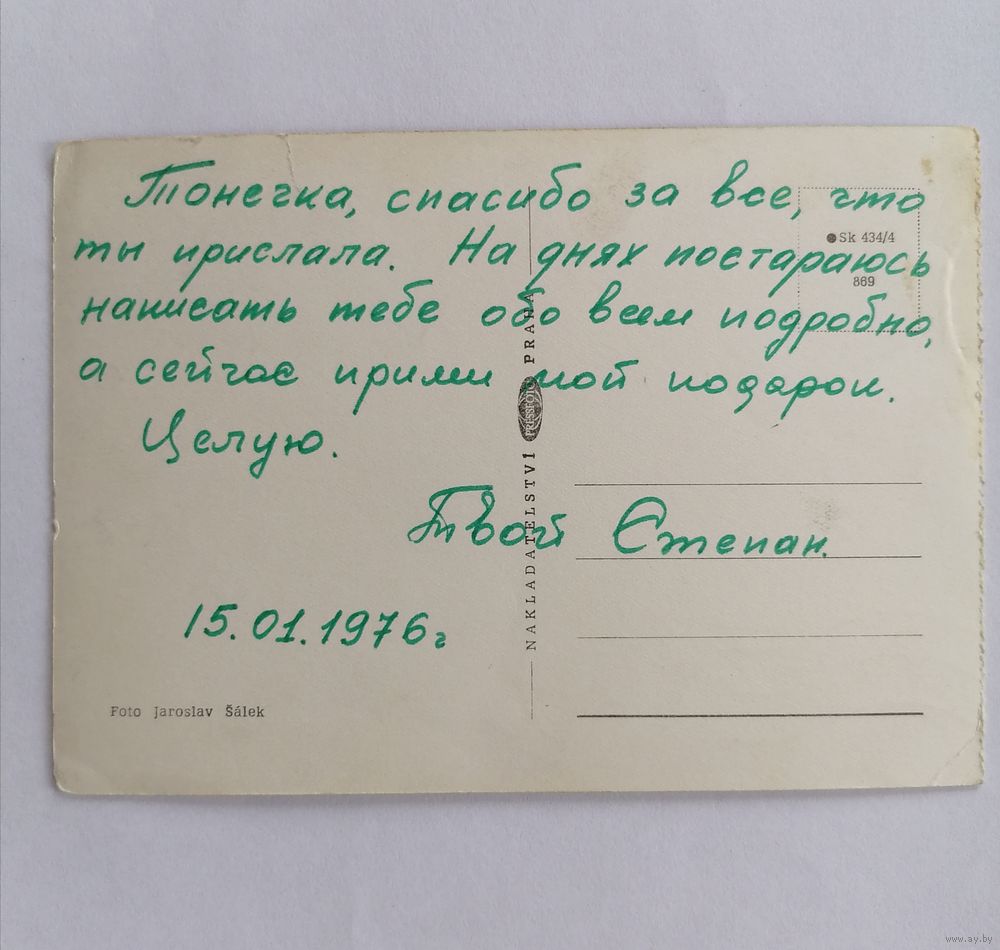 Тонечка, спасибо за все, что
ты прислала. На днях постараюсь
написать тебе обо всем подробно,
а сейчас прими мой подарок.
Целую.
Твой Степан.
15.01.1976г
Sk 434/4
869
NAKLADATELSTVÍ PRESSFOTO PRAHA
Foto Jaroslav Šálek
www.ay.by